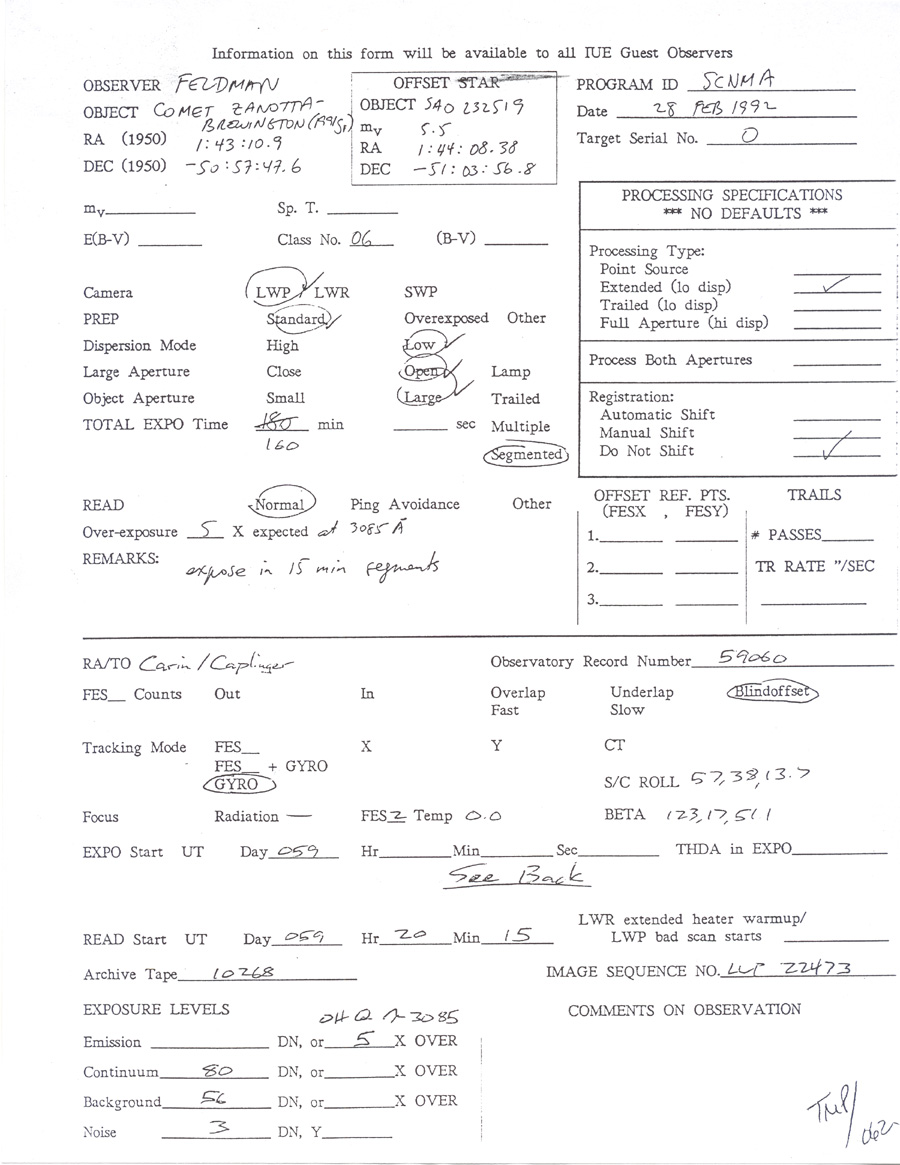 Information on this form will be available to all IUE Guest Observers
OBSERVER FELDMAN
OBJECT COMET ZANOTTA-
BREWINGTON (1991g1)
RA (1950) 1:43:10.9
DEC (1950) -50:57:47.6
OFFSET STAR
OBJECT SAO 232519
mv 5.5
RA 1:44:08.38
DEC -51:03:56.8
PROGRAM ID SCNMA
Date 28 FEB 1992
Target Serial No. 0
mv Sp. T.
E(B-V) Class No. 06 (B-V)
Camera LWP LWR SWP
PREP Standard Overexposed Other
Dispersion Mode High Low
Large Aperture Close Open Lamp
Object Aperture Small Large Trailed
TOTAL EXPO Time 180 min sec Multiple
160 Segmented
PROCESSING SPECIFICATIONS
*** NO DEFAULTS ***
Processing Type:
Point Source
Extended (lo disp)
Trailed (lo disp)
Full Aperture (hi disp)
Process Both Apertures
Registration:
Automatic Shift
Manual Shift
Do Not Shift
READ Normal Ping Avoidance Other
Over-exposure 5 X expected at 3085 Å
REMARKS: expose in 15 min segments
OFFSET REF. PTS.
(FESX , FESY)
1.
2.
3.
TRAILS
# PASSES
TR RATE "/SEC
RA/TO Carin/Caplinger Observatory Record Number 59060
FES Counts Out In Overlap Underlap Blindoffset
Fast Slow
Tracking Mode FES X Y CT
FES + GYRO
GYRO S/C ROLL 57,38,13.7
Focus Radiation — FES 2 Temp 0.0 BETA 123,17,511
EXPO Start UT Day 059 Hr Min Sec THDA in EXPO
See Back
READ Start UT Day 059 Hr 20 Min 15
LWR extended heater warmup/
LWP bad scan starts
Archive Tape 10268 IMAGE SEQUENCE NO. LWP 22473
EXPOSURE LEVELS COMMENTS ON OBSERVATION
OH @ λ-3085
Emission DN, or 5 X OVER
Continuum 80 DN, or X OVER
Background 56 DN, or X OVER
Noise 3 DN, Y